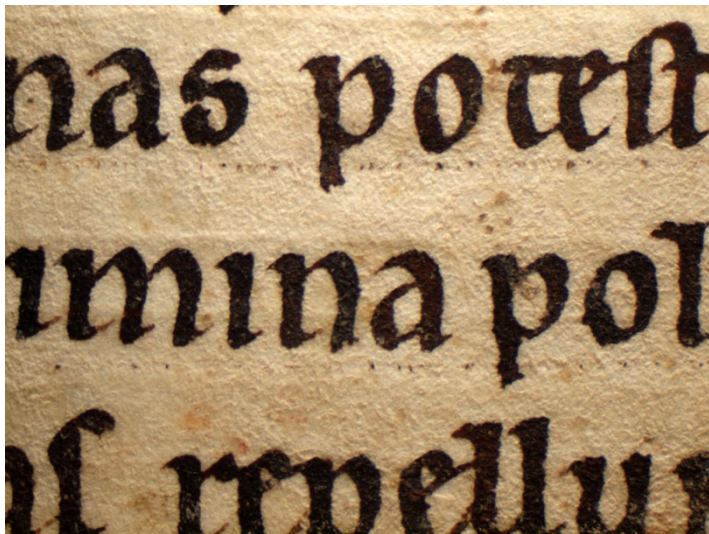 nas poteſt
umina pol
repellu